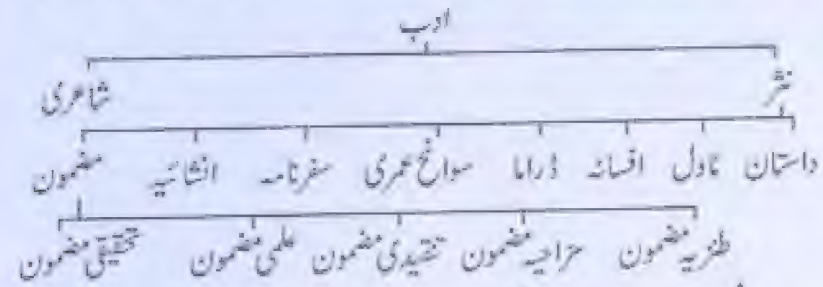 ادب
نثر شاعری
داستان ناول افسانہ ڈراما سوانح عمری سفرنامہ انشائیہ مضمون
طنزیہ مضمون مزاحیہ مضمون تنقیدی مضمون علمی مضمون تحقیقی مضمون